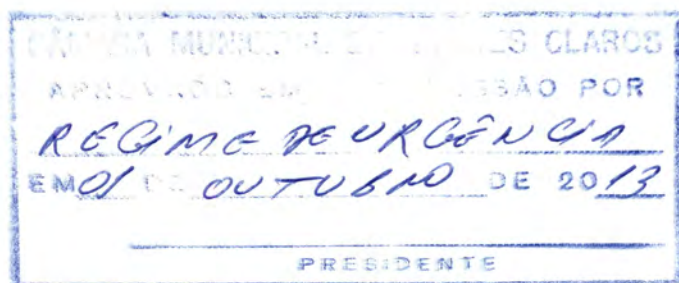 CÂMARA MUNICIPAL DE MONTES CLAROS
APROVADO EM DISCUSSÃO POR
REGIME DE URGÊNCIA
EM 01 DE OUTUBRO DE 2013
PRESIDENTE